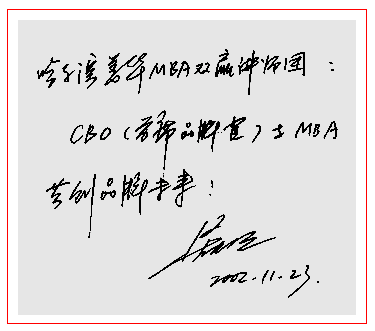 哈尔滨慧华MBA双赢律师团：
CBO（首席品牌官）与MBA
共创品牌未来！
2002.11.23.